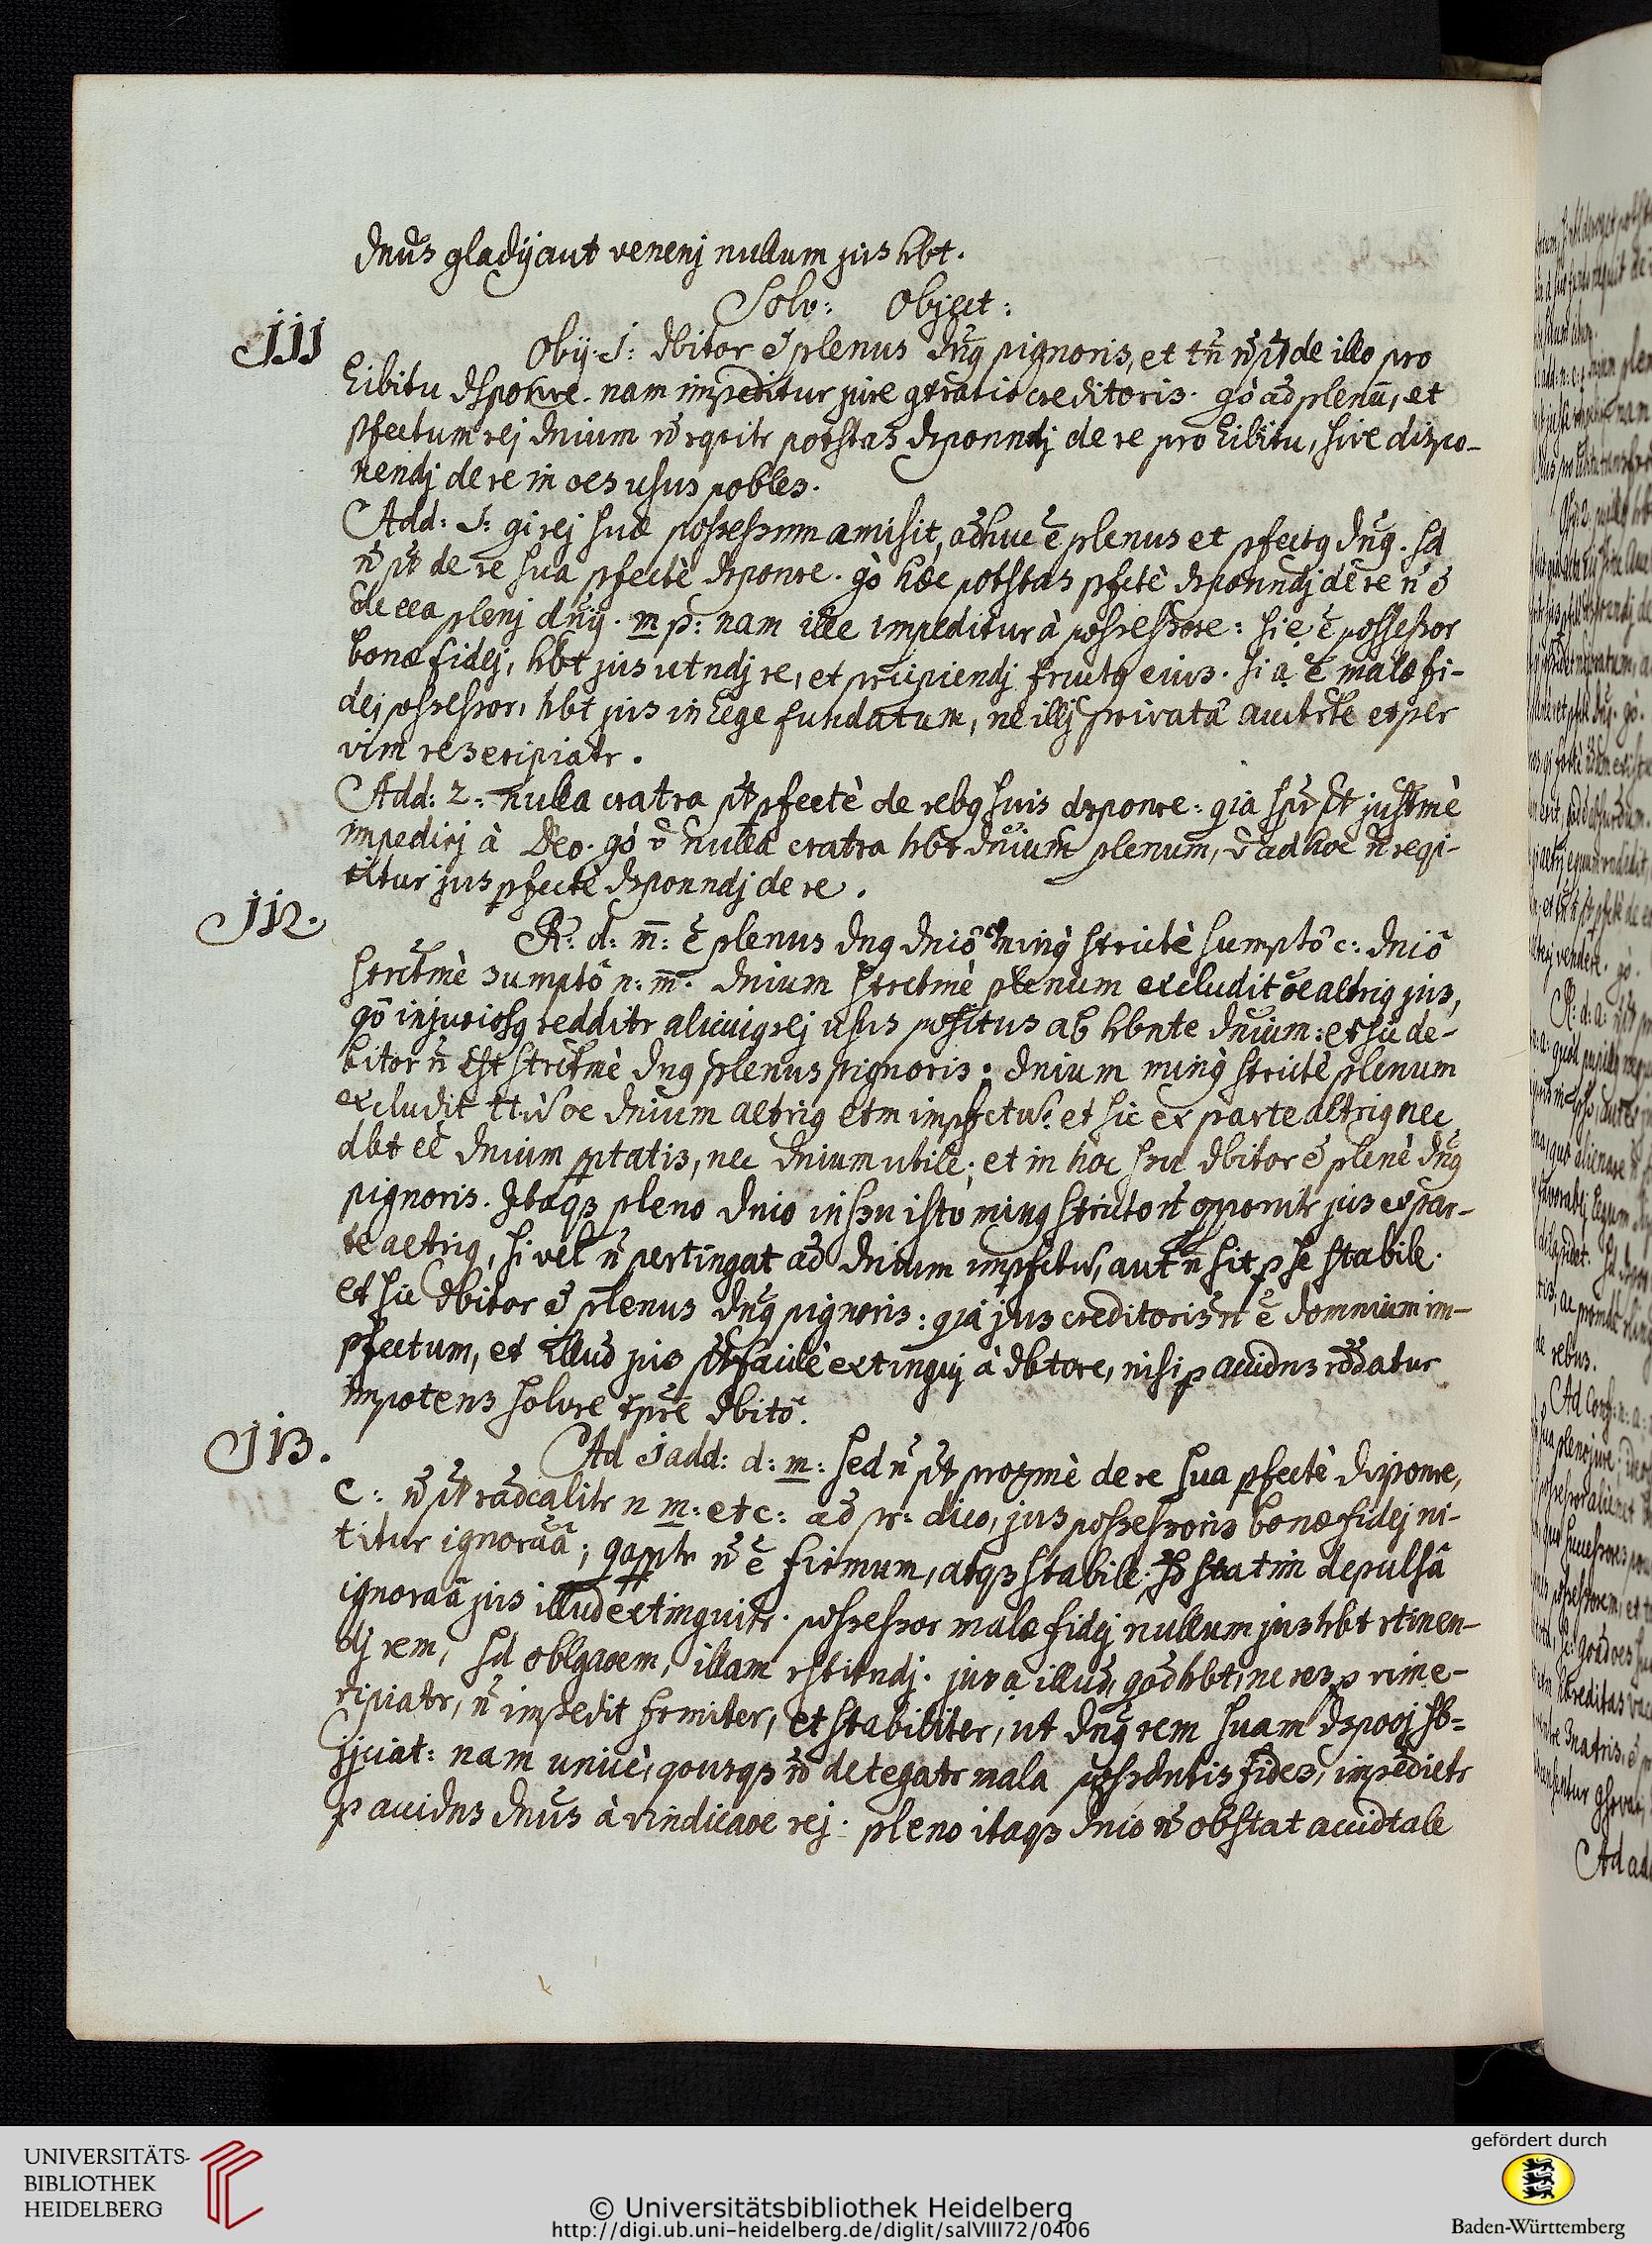 dnus gladij aut venenj nullum jus hbt.
Solv: Object:
111 Obij: 1: dbitor ē plenus dnq pignoris, et tn̄ n̄ pt de illo pro
libitu dsponre. nam impeditur jure creditoris. gò ad plenū, et
pfectum rej dnium n̄ rqritr potstas dsponndj de re pro libitu, sive dispo-
nendj de re in oes usus pobles.
Add: 1: qi rej suæ possessnm amisit, adhuc ē plenus et pfectq dnq. sd
n̄ pt de re sua pfectè dsponre. gò hæc potstas pfctè dsponndj de re n̄ ē
de eea plenj dnij. m p: nam ille impeditur à possessore: si e ē possessor
bonæ fidej, hbt jus utndj re, et prcipiendj fructq eius. si a ē malæ fi-
dej possessor, hbt jus in lege fundatum, ne illj privatâ auctrte et per
vim res eripiatr.
Add: 2: nulla cratra pt pfectè de rebq suis dsponre: qia spr pt justmè
impedirj à Deo. gò v nulla cratra hbt dnium plenum, v ad hoc n̄ reqi-
ritur jus pfectè dsponndj de re.
112. R: d: m̄: ē plenus dnq dniô minq strictè sumptô c: dniô
strctmè sumptô n: m̄. dnium strctmè plenum excludit oe altriq jus,
qô injuriosq redditr alicuiq rej usus positus ab hbnte dnium: et sic de-
bitor n̄ est strctmè dnq plenus pignoris: dnium minq strictè plenum
excludit oe dnium altriq etm impfctu: et sic ex parte altriq nec
dbt eē dnium ptatis, nec dnium utile; et in hoc snu dbitor ē plenè dnq
pignoris. Itaqs pleno dnio in snu isto minq stricto n̄ opponitr jus ex par-
te altriq, si vel n̄ pertingat ad dnium impfctu, aut n̄ sit p se stabile.
et sic dbitor ē plenus dnq pignoris: qia jus creditoris n̄ ē domnium im-
pfectum, et illud jus pt facilè extinguj à dbtore, nisi p accidns rddatur
impotens solvre dbitô.
113. Ad 1 add: d: m: sed n̄ pt proxmè de re sua pfectè disponre,
c: n̄ pt radcalitr n m: et c: ad pr: dico, jus possessoris bonæ fidej ni-
titur ignoraâ; qapptr n̄ ē firmum, atqs stabile: sd statim depulsâ
ignoraâ jus illud extinguitr. possessor malæ fidej nullum jus hbt rtinen-
dj rem, sd oblgaoem, illam rstitndj. jus a illud, qod hbt, ne res p rim e-
ripiatr, n̄ impedit frmiter, et stabiliter, ut dnq rem suam dspooj sb=
jjciat: nam unicè, qousqs n̄ detegatr mala possdntis fides, impedietr
p accidns dnus à vindicaoe rej. pleno itaqs dnio n̄ obstat accidtale
UNIVERSITÄTS-
BIBLIOTHEK
HEIDELBERG
© Universitätsbibliothek Heidelberg
http://digi.ub.uni-heidelberg.de/diglit/salVIII72/0406
gefördert durch
Baden-Württemberg